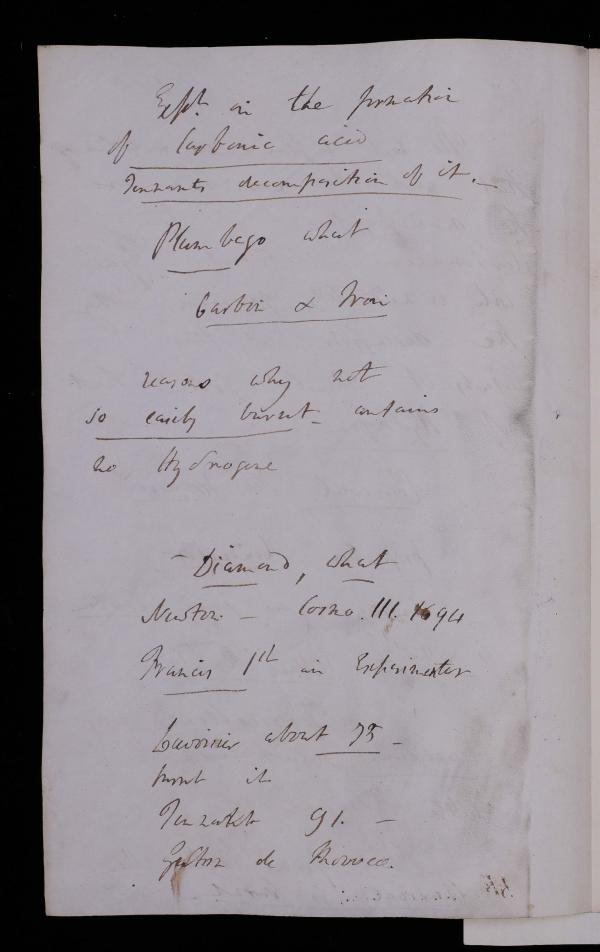 Expt. on the formation
of Carbonic acid
Tennants decomposition of it. _
Plumbago what
Carbon & Iron
reasons why not
so easily burnt - contains
no Hydrogene
- Diamond, what
Newton - Cosmo. III. 1694
Francis 1st an Experimenter
Lavoisier about 75 -
burnt it
Tennant 91. -
Guiton de Morveau.